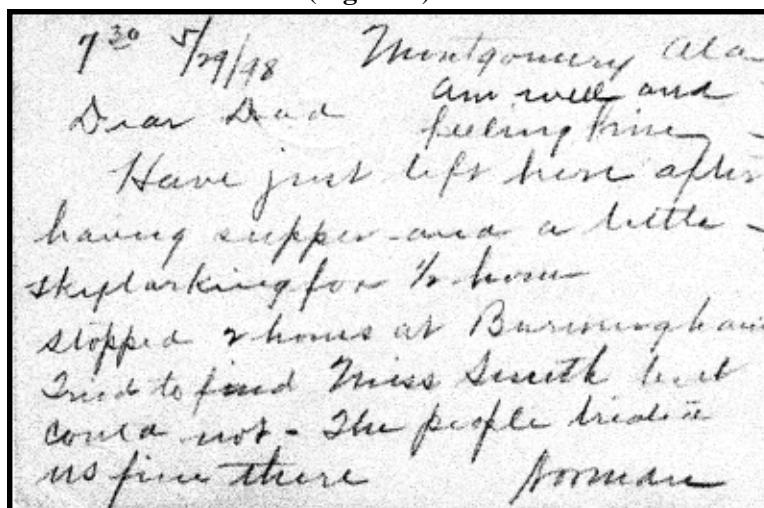 7 30 5/29/98 Montgomery Ala
Am well and
Dear Dad feeling fine
Have just left here after
having supper and a little
skylarking for 1/2 hour
stopped 2 hours at Burmingham
Tried to find Miss Smith but
could not - The people treated
us fine there Norman